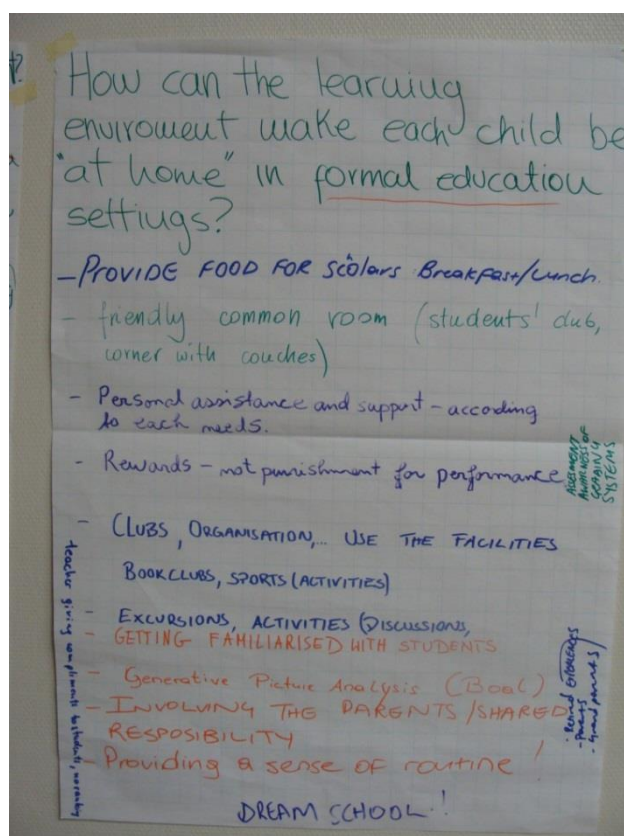 t?
How can the learning
enviroment make each child be
"at home" in formal education
settings?
- PROVIDE FOOD FOR SCOLARS Breakfast/Lunch.
- friendly common room (students' club,
corner with couches)
- Personal assistance and support - according
to each needs.
- Rewards - not punishment for performance
AWARENESS OF
GRADING
SYSTEMS
- CLUBS, ORGANISATION,... USE THE FACILITIES
BOOKCLUBS, SPORTS (ACTIVITIES)
- EXCURSIONS, ACTIVITIES (DISCUSSIONS,
- GETTING FAMILIARISED WITH STUDENTS.
- Generative Picture Analysis (Boal)
- INVOLVING THE PARENTS / SHARED
RESPOSIBILITY
- Providing a sense of routine!
DREAM SCHOOL!
teacher giving compliments to students,
EXPERIENCES
- Parents
- Grand parents